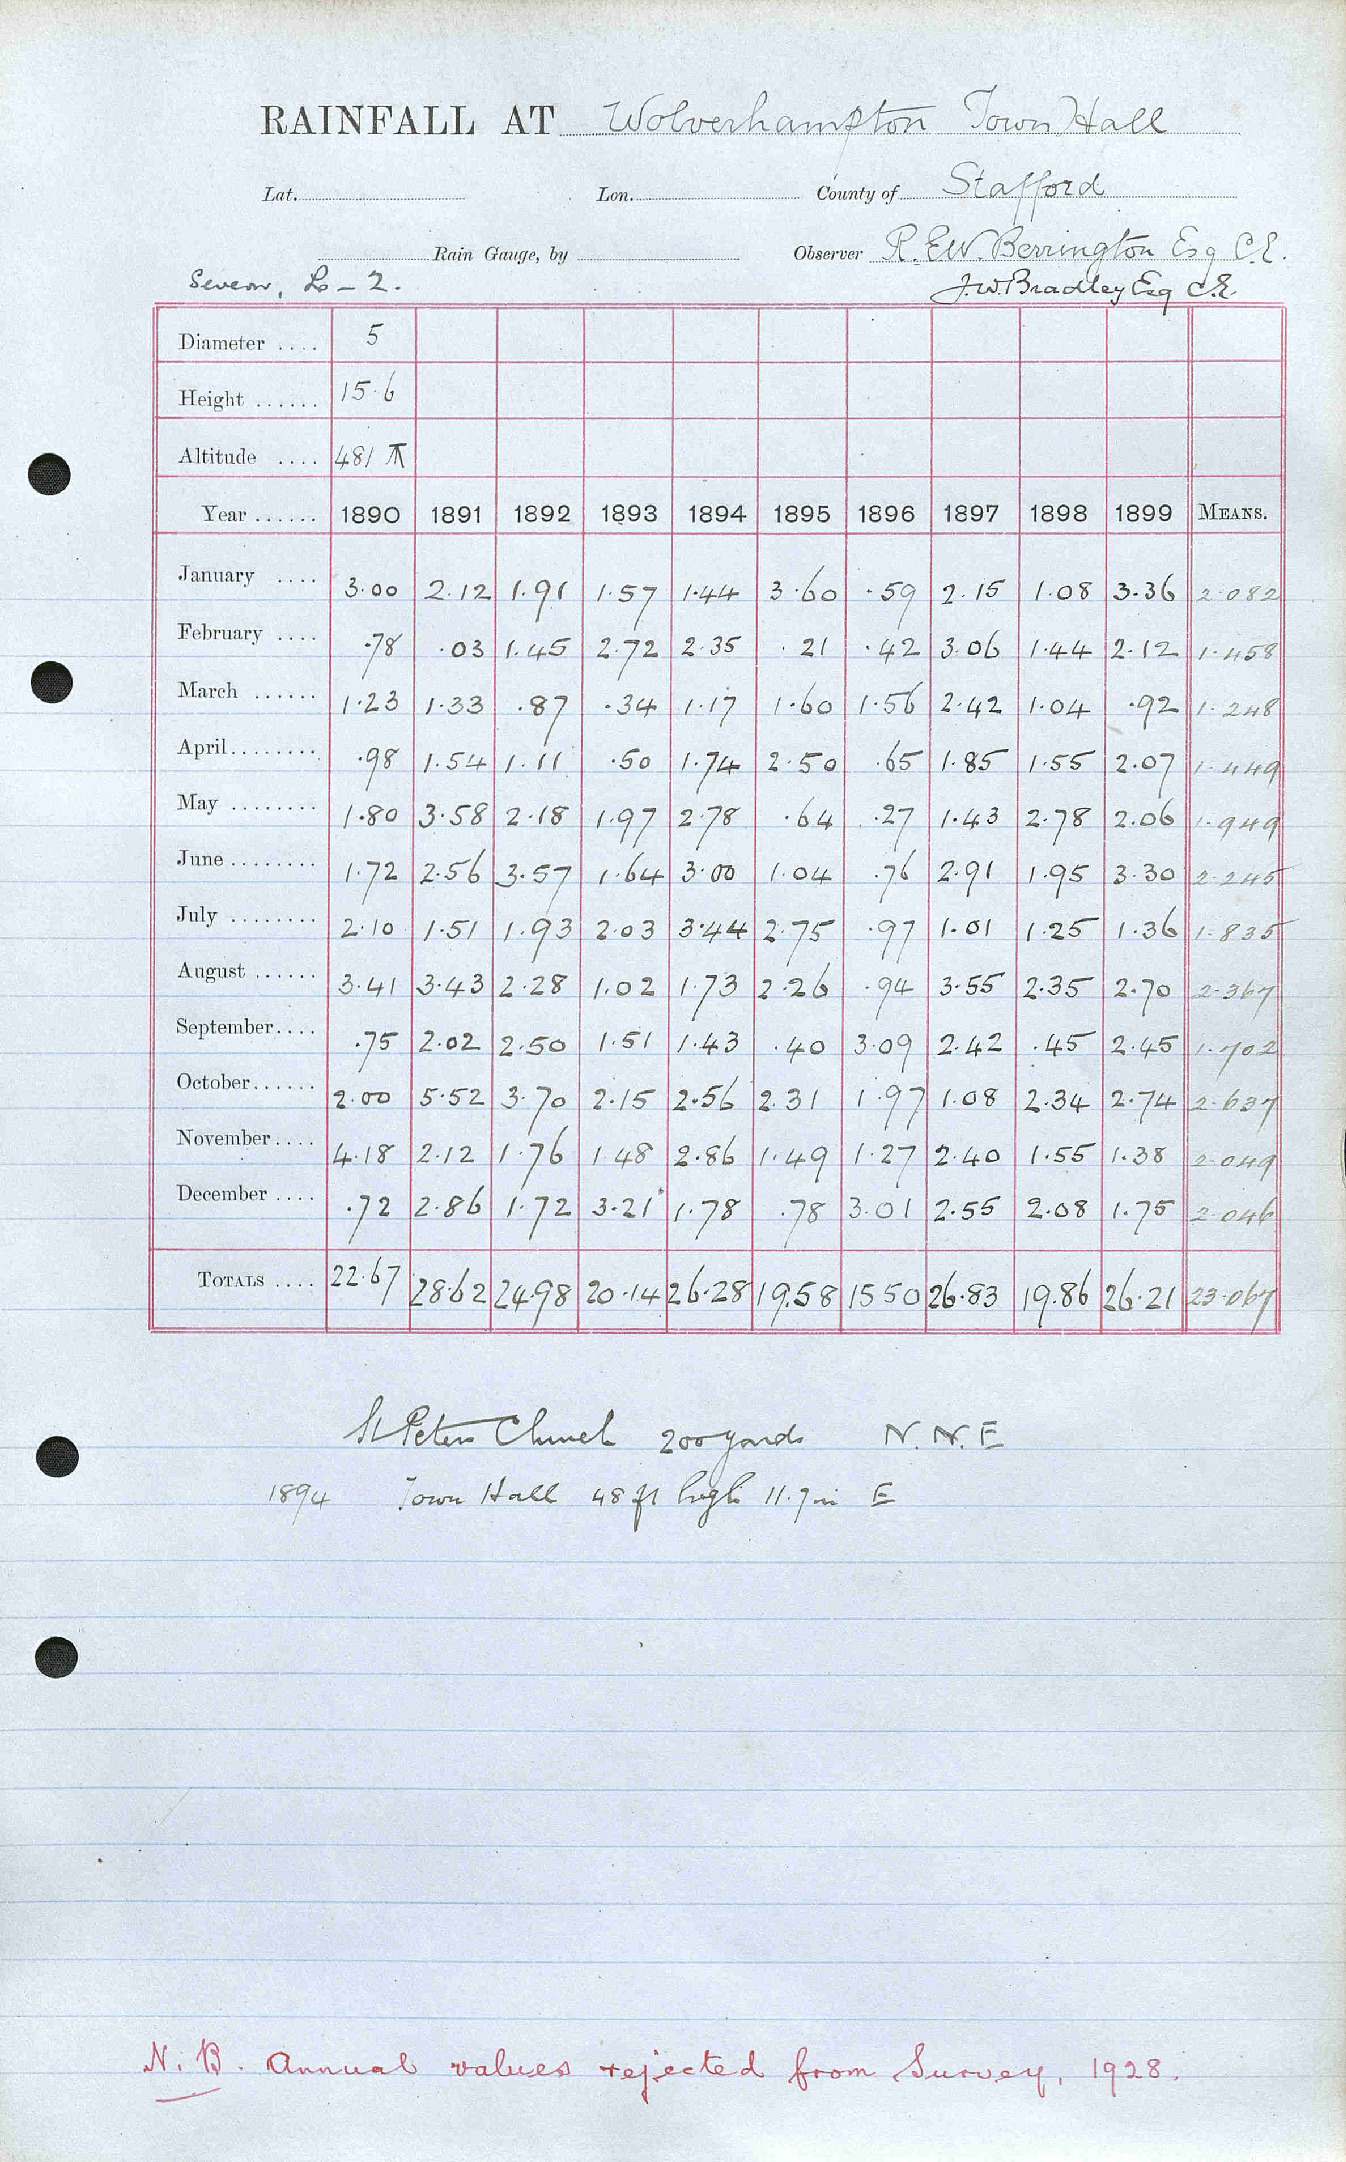 RAINFALL AT Wolverhampton Town Hall
Lat. Lon. County of Stafford
Rain Gauge, by Observer R. E.W. Berrington Esq C.E.
Severn, L - 2. J.W. Bradley Esq C.E
Diameter .... 5
Height ...... 15.6
Altitude .... 481
Year ...... 1890 1891 1892 1893 1894 1895 1896 1897 1898 1899 MEANS.
January .... 3.00 2.12 1.91 1.57 1.44 3.60 .59 2.15 1.08 3.36 2.082
February .... .78 .03 1.45 2.72 2.35 .21 .42 3.06 1.44 2.12 1.458
March ...... 1.23 1.33 .87 .34 1.17 1.60 1.56 2.42 1.04 .92 1.248
April........ .98 1.54 1.11 .50 1.74 2.50 .65 1.85 1.55 2.07 1.449
May ........ 1.80 3.58 2.18 1.97 2.78 .64 .27 1.43 2.78 2.06 1.949
June ........ 1.72 2.56 3.57 1.64 3.00 1.04 .76 2.91 1.95 3.30 2.245
July ........ 2.10 1.51 1.93 2.03 3.44 2.75 .97 1.01 1.25 1.36 1.835
August ...... 3.41 3.43 2.28 1.02 1.73 2.26 .94 3.55 2.35 2.70 2.367
September.... .75 2.02 2.50 1.51 1.43 .40 3.09 2.42 .45 2.45 1.702
October...... 2.00 5.52 3.70 2.15 2.56 2.31 1.97 1.08 2.34 2.74 2.637
November.... 4.18 2.12 1.76 1.48 2.86 1.49 1.27 2.40 1.55 1.38 2.049
December .... .72 2.86 1.72 3.21 1.78 .78 3.01 2.55 2.08 1.75 2.046
TOTALS .... 22.67 28.62 24.98 20.14 26.28 19.58 15 50 26.83 19.86 26.21 23.067
St Peters Church 200 yards N. N. E
1894 Town Hall 48 ft high 11.7 in E
N. B. Annual values rejected from Survey, 1928.